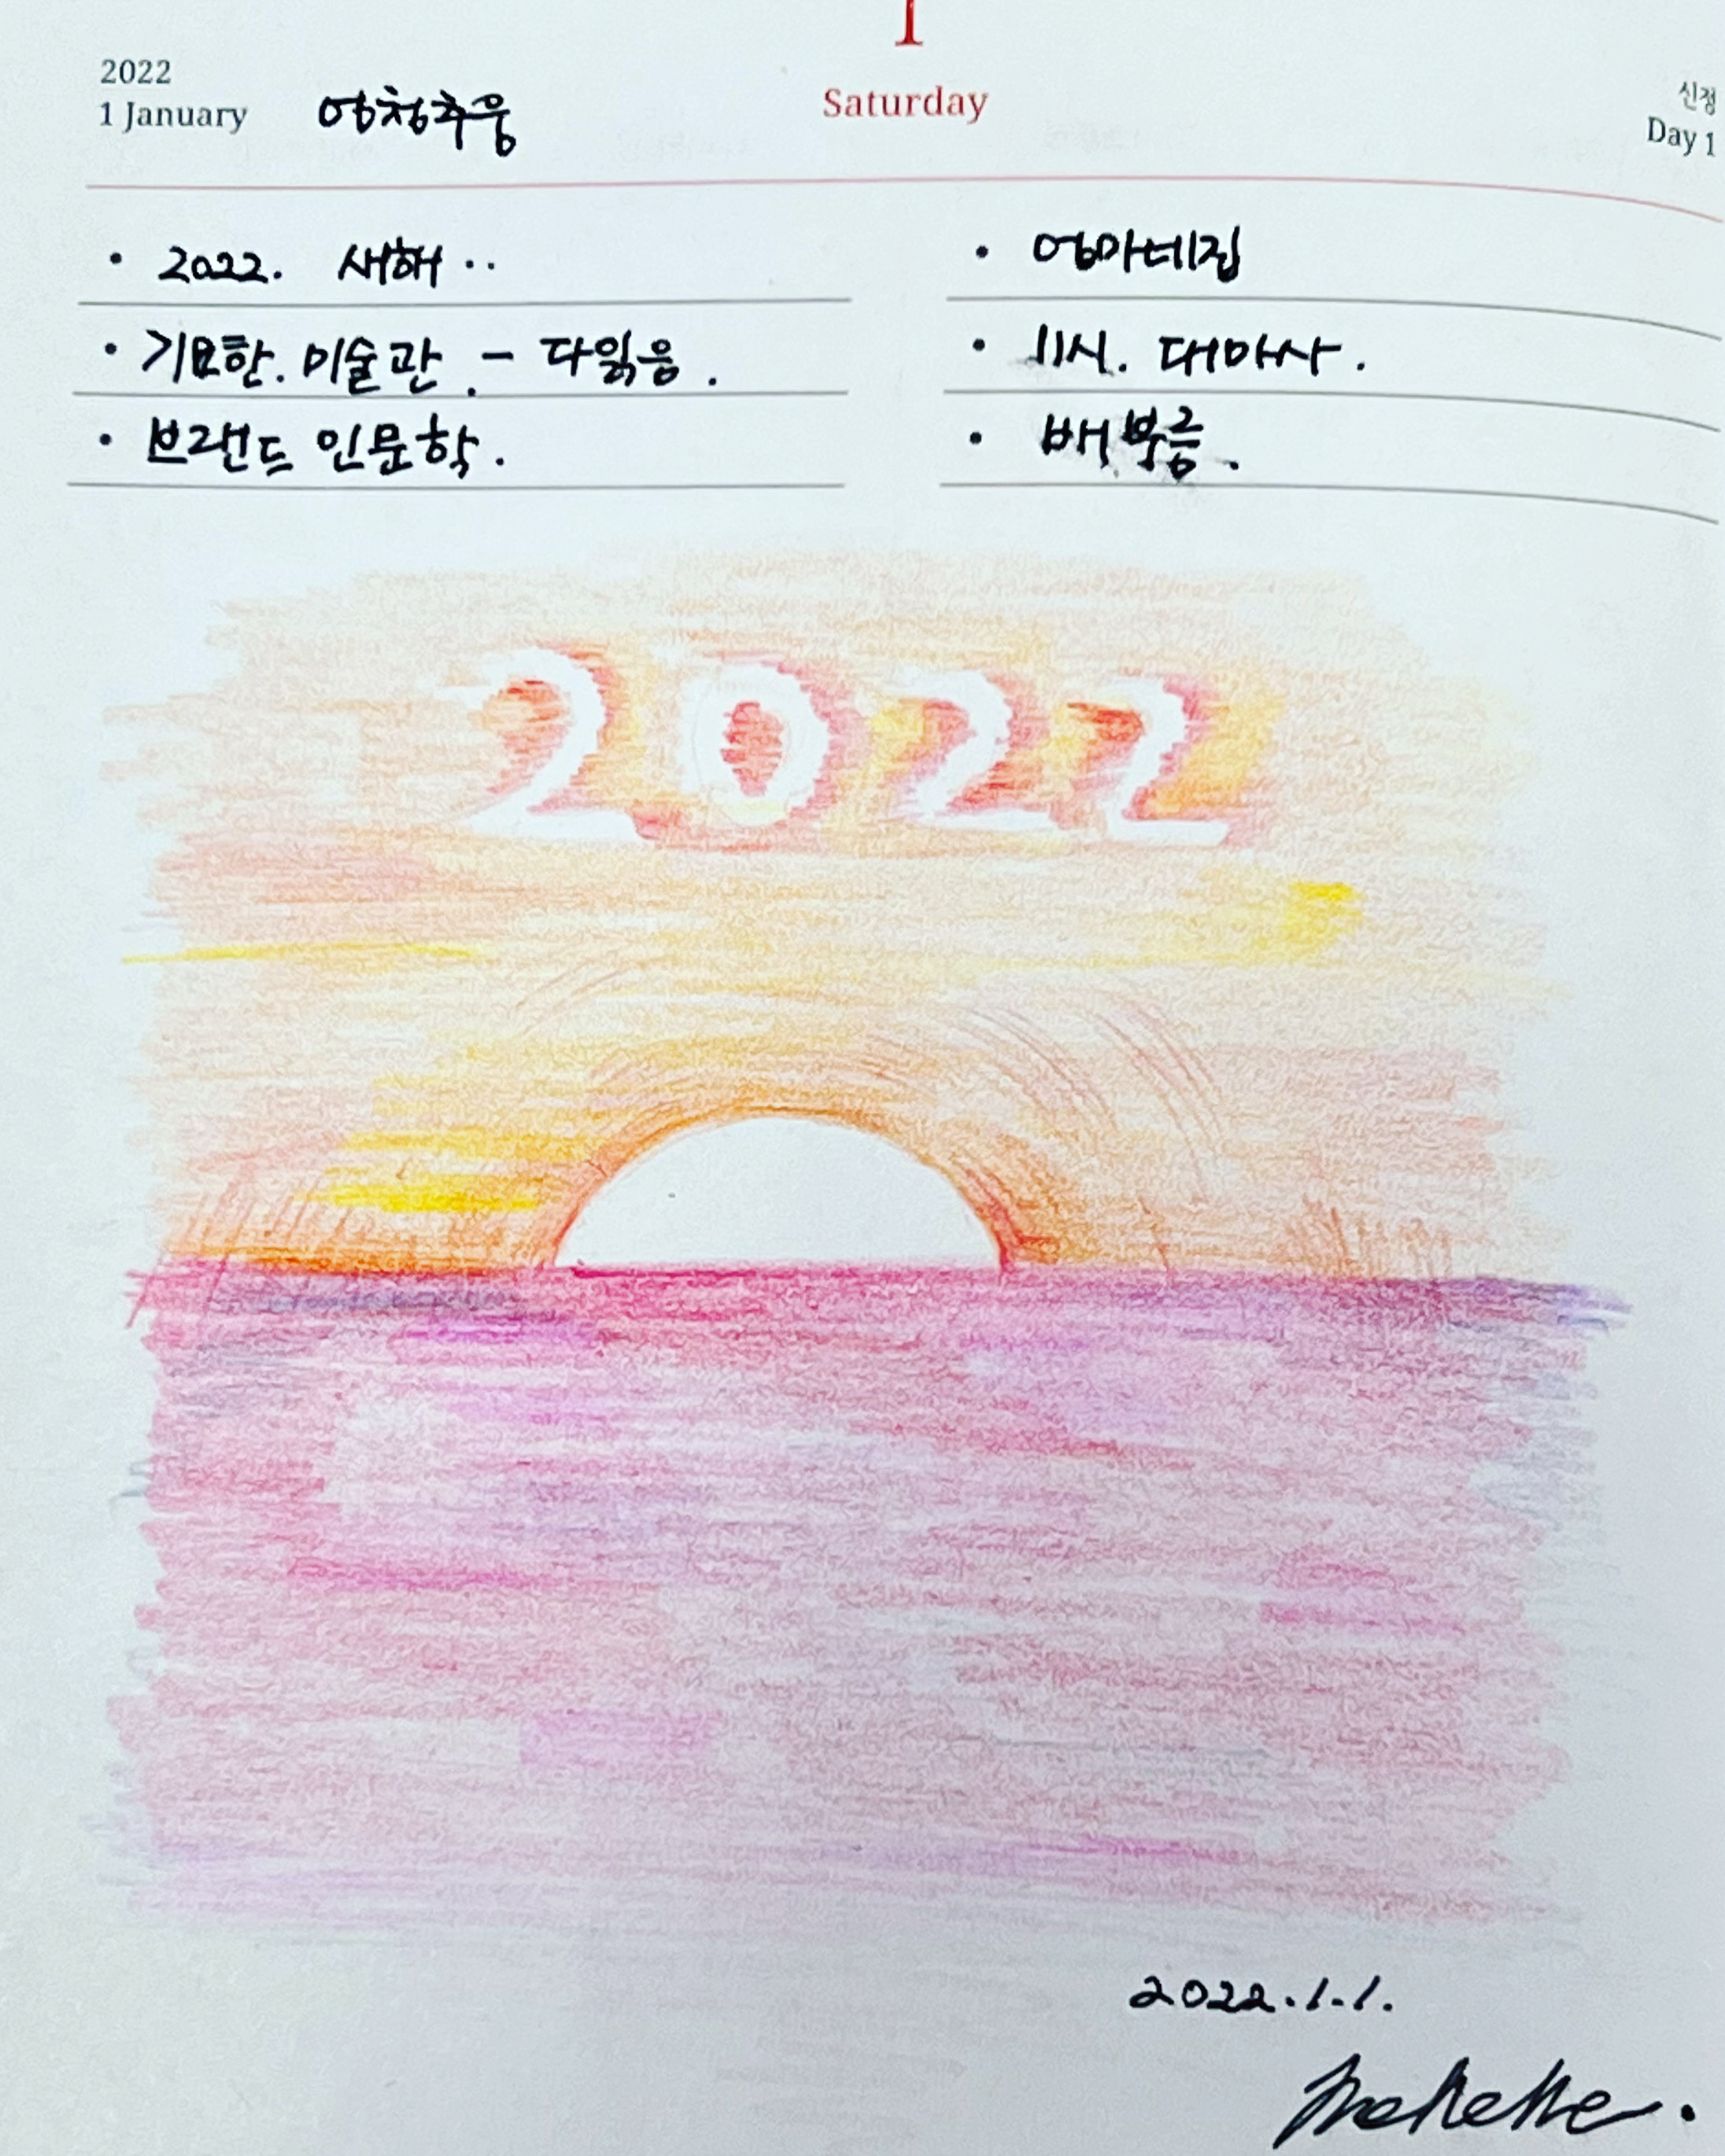 1
2022
1 January 엄청추움
Saturday
신정
Day 1
• 2022. 새해 ..
• 기묘한. 미술관. - 다읽음.
• 브랜드 인문학.
• 엄마네집
• 11시. 대마사.
• 배부름.
2022
2022.1.1.